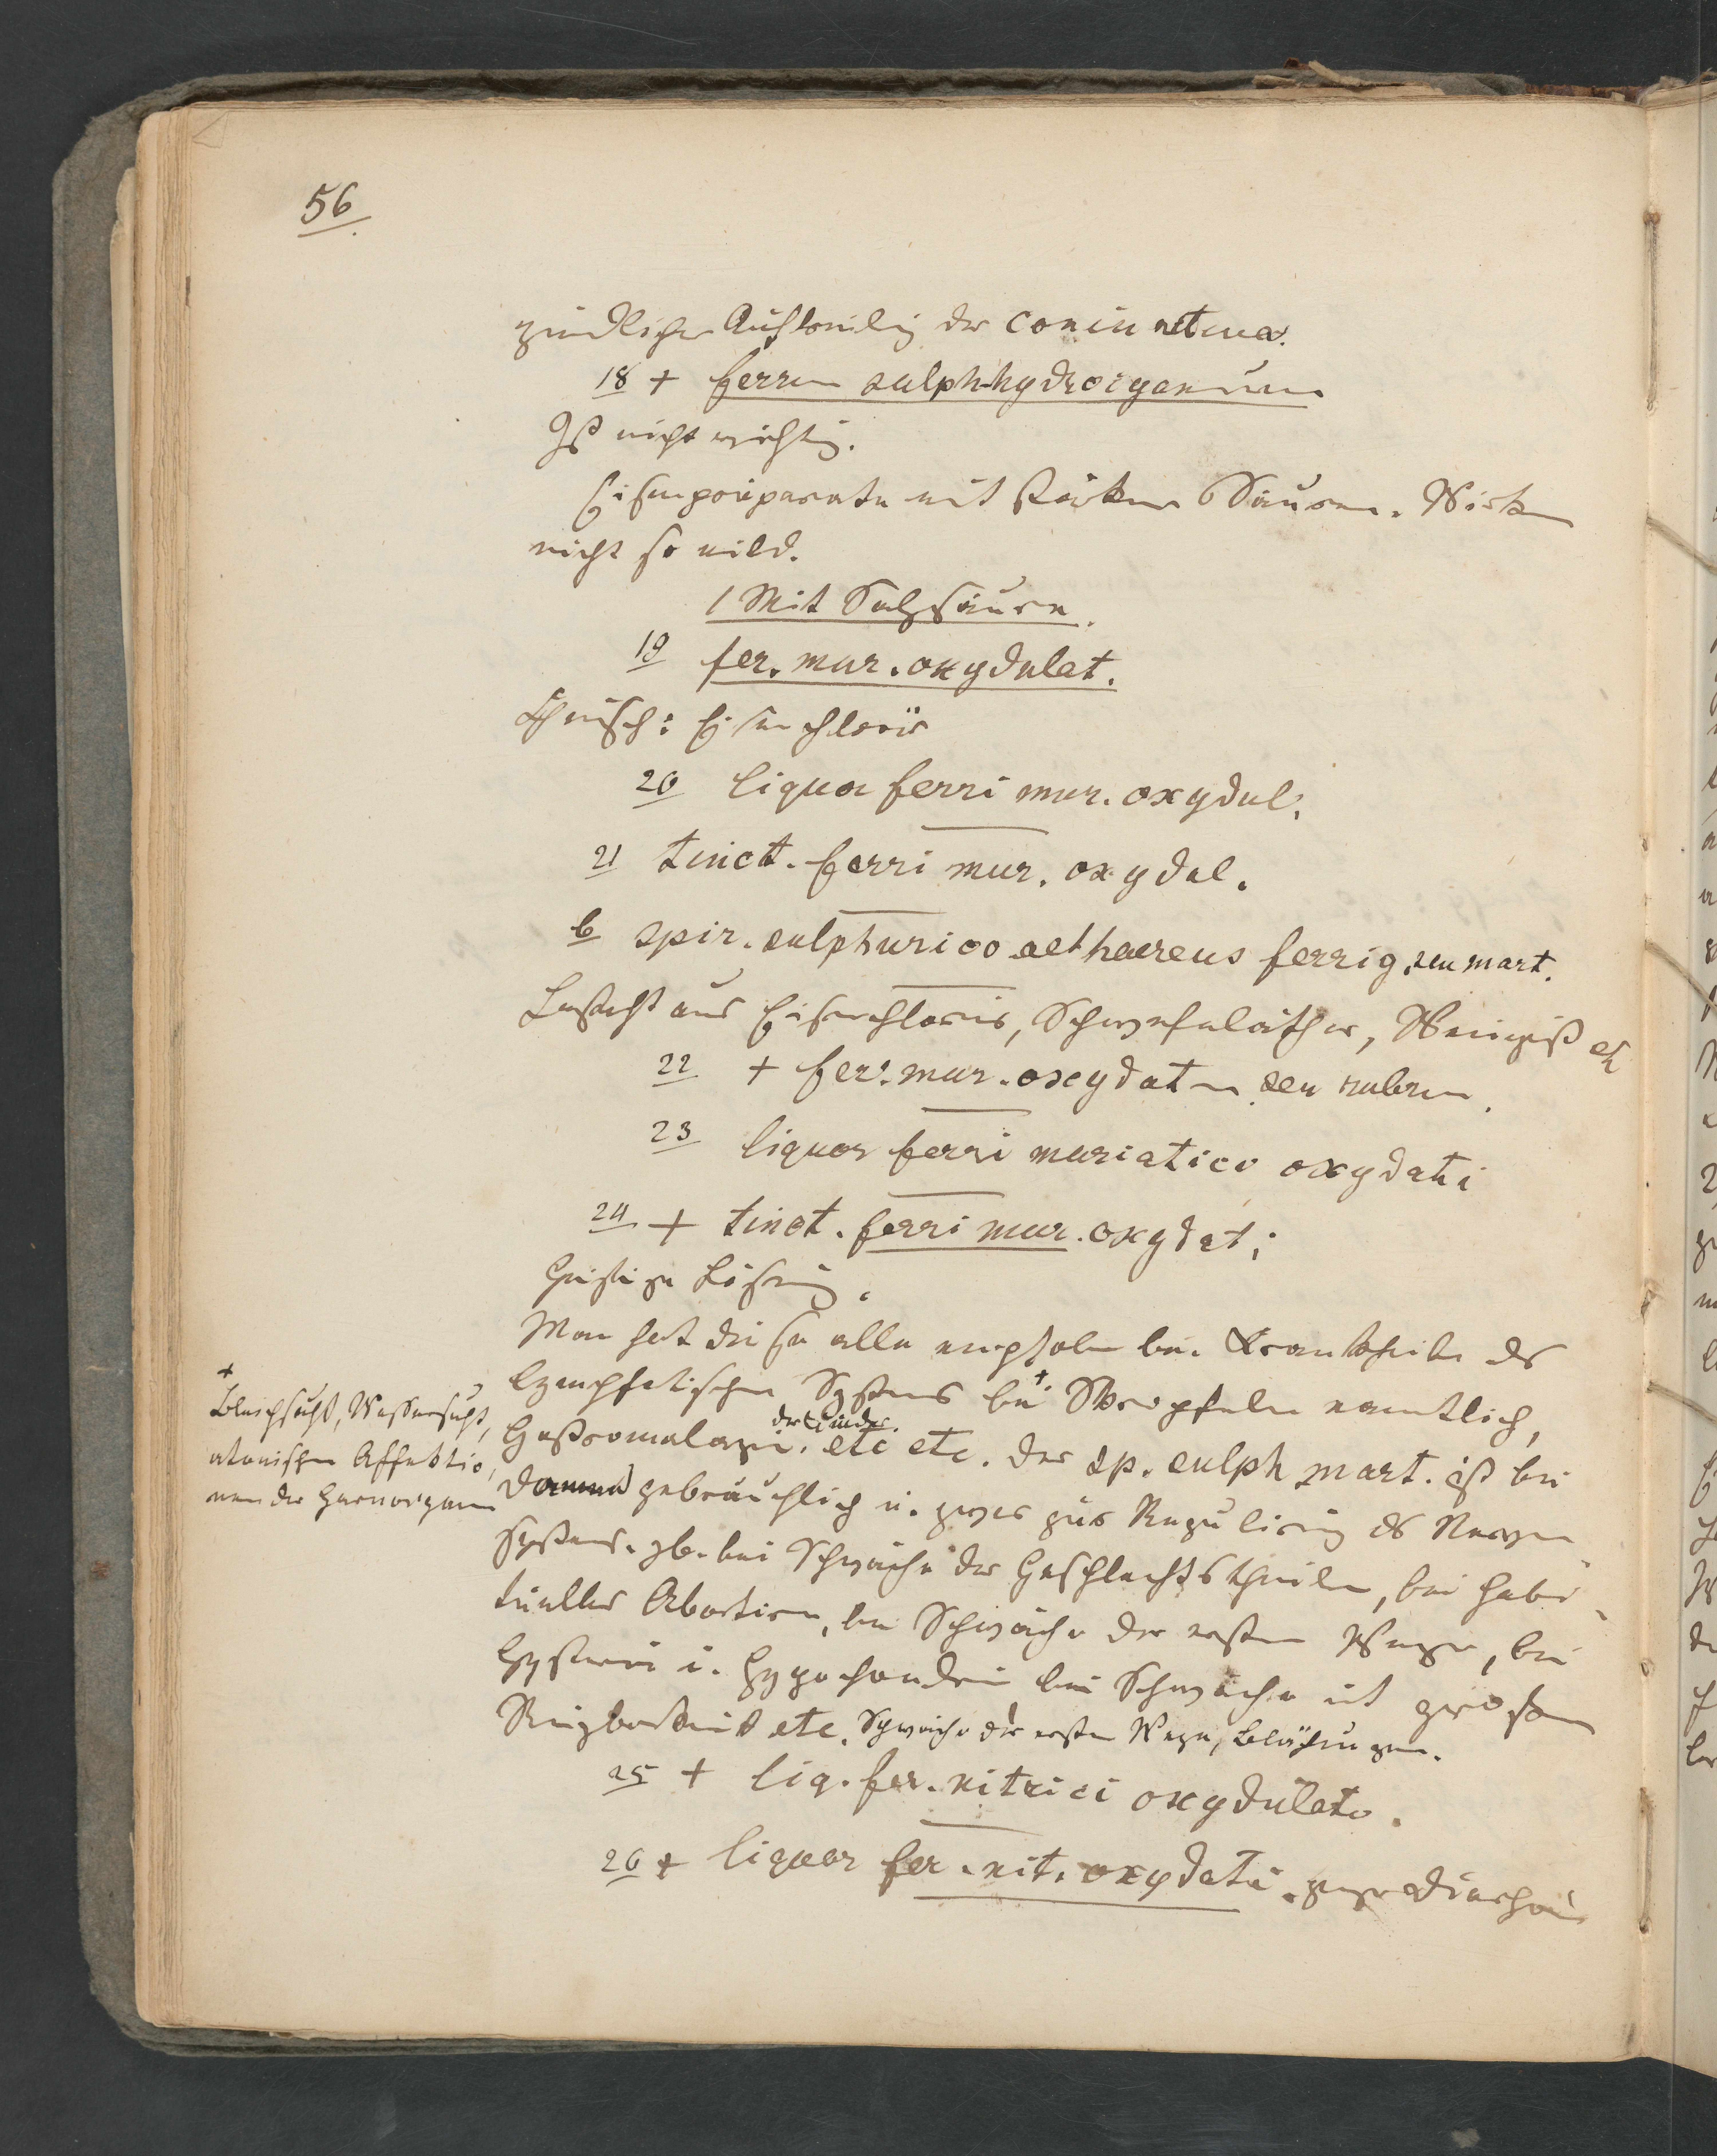 56
zündlicher Auflockerung der coniunctiva.
18 + ferrum sulph-hydroigenum
Ist nicht wichtig.
Eisenpräparate mit stärkern Säuren. Wirken
nicht so mild.
1 Mit Salzsäure.
19 fer. mur. oxydulat.
Chemisch: Eisenchlorür
20 liquor ferri mur. oxydul.
21 tinct. ferri mur. oxydul.
b spir. sulphurico aethaereus ferrig. seu mart.
Besteht aus Eisenchlorür, Schwefeläther, Weingeist etc
22 + fer. mur. oxydatum seu rubrum.
23 liquor ferri muriatico oxydati
24 + tinct. ferri mur. oxydat.
Geistige Lösung.
Man hat diese alle empfohlen bei Krankheiten des
lymphatischen Systems bei + Skropfeln namentlich,
+ Bleichsucht, Wassersucht,
atonischen Affektio-
nen der Harnorgane
Gastromalazie der Kinder. etc etc. Der sp. sulph mart. ist bei
Damen gebräuchlich u. zwar zur Regulirung des Nerven-
systems. zb. bei Schwäche der Geschlechtstheile, bei habi-
tueller Abortion, bei Schwäche der ersten Wege, bei
Hysterie u. Hypochondrie bei Schwäche mit großer
Reizbarkeit etc. Schwäche der ersten Wege, Blähungen.
25 + liq. fer. nitrici oxydulato.
26 + liquor fer. nit. oxydati. gegen Diarrhöe